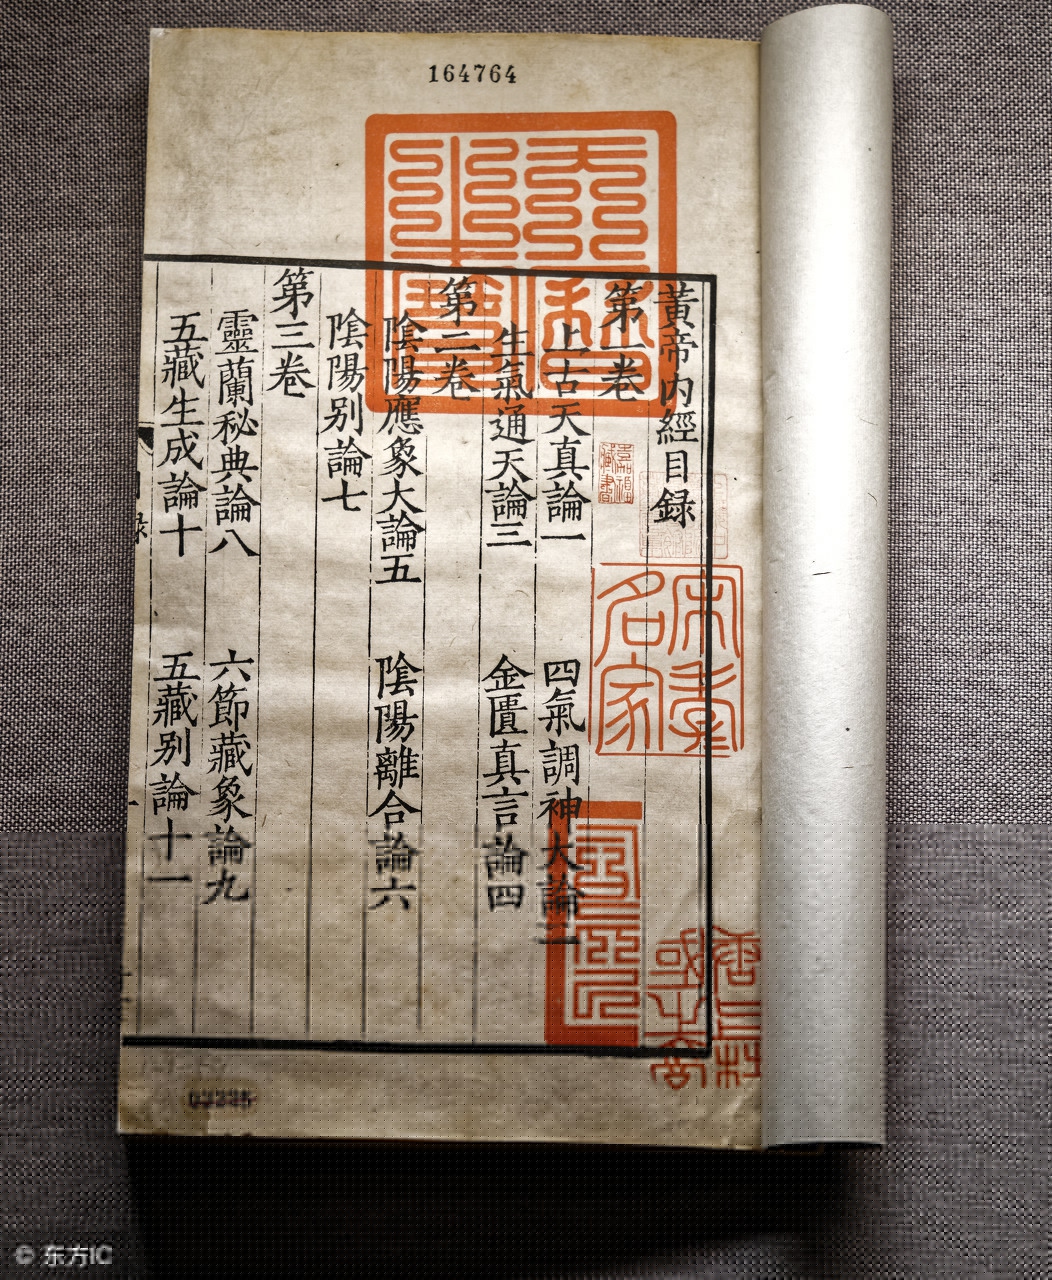 164764
黃帝内經目録
第一卷
上古天真論一 四氣調神大論二
生氣通天論三 金匱真言論四
第二卷
陰陽應象大論五 陰陽離合論六
陰陽别論七
第三卷
靈蘭秘典論八 六節藏象論九
五藏生成論十 五藏别論十一
嘉福藏書
宋本
名家
© 东方IC